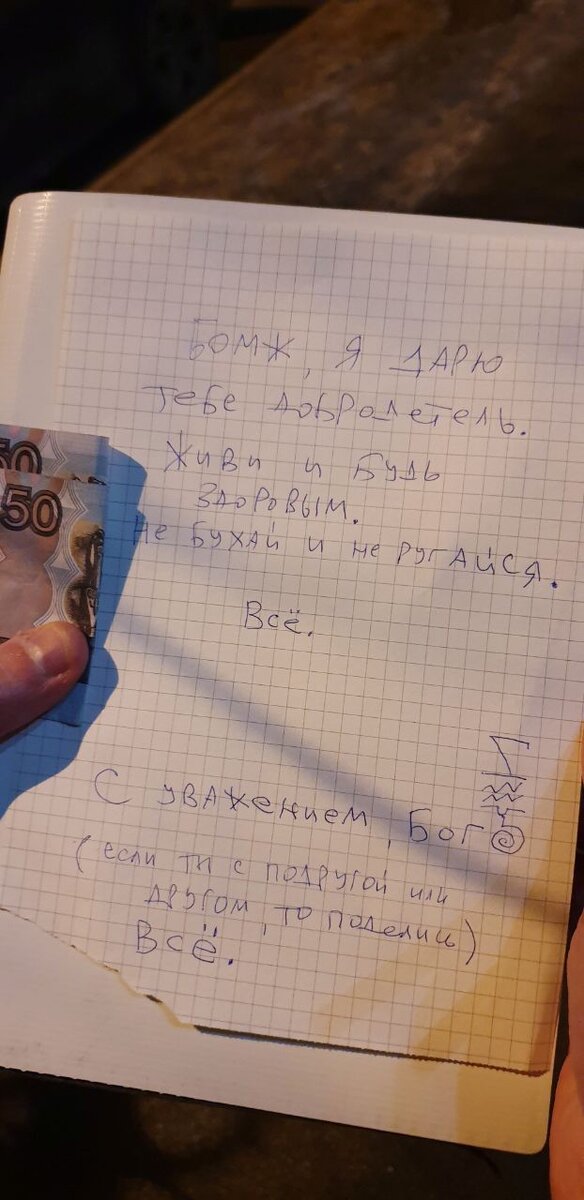 50
50
Бомж, я дарю
тебе добродетель.
Живи и будь
здоровым.
Не бухай и не ругайся.
Всё.
С уважением, Бог
(если ты с подругой или
другом, то поделись)
Всё.